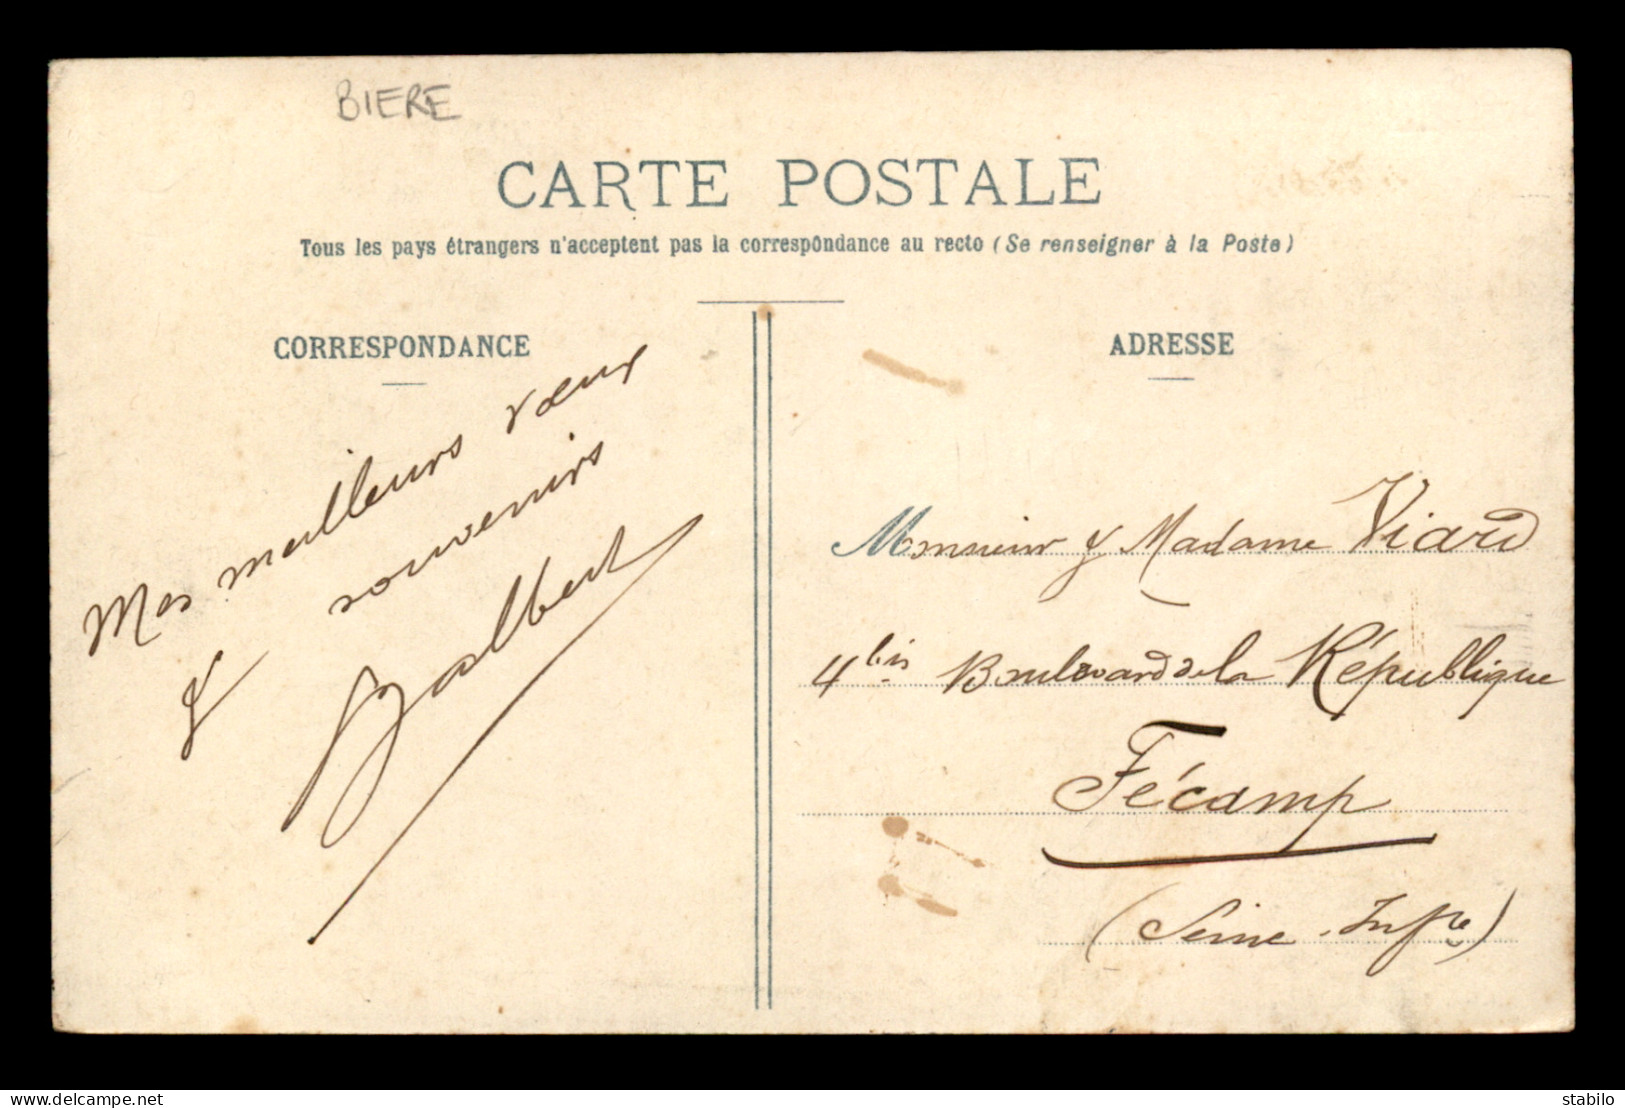 BIERE
CARTE POSTALE
Tous les pays étrangers n'acceptent pas la correspondance au recto (Se renseigner à la Poste)
CORRESPONDANCE
Mes meilleurs vœux
& souvenirs
Balbert
ADRESSE
Monsieur & Madame Viard
4bis Boulevard de la République
Fécamp
(Seine-Infre)
delcampe.net
stabilo